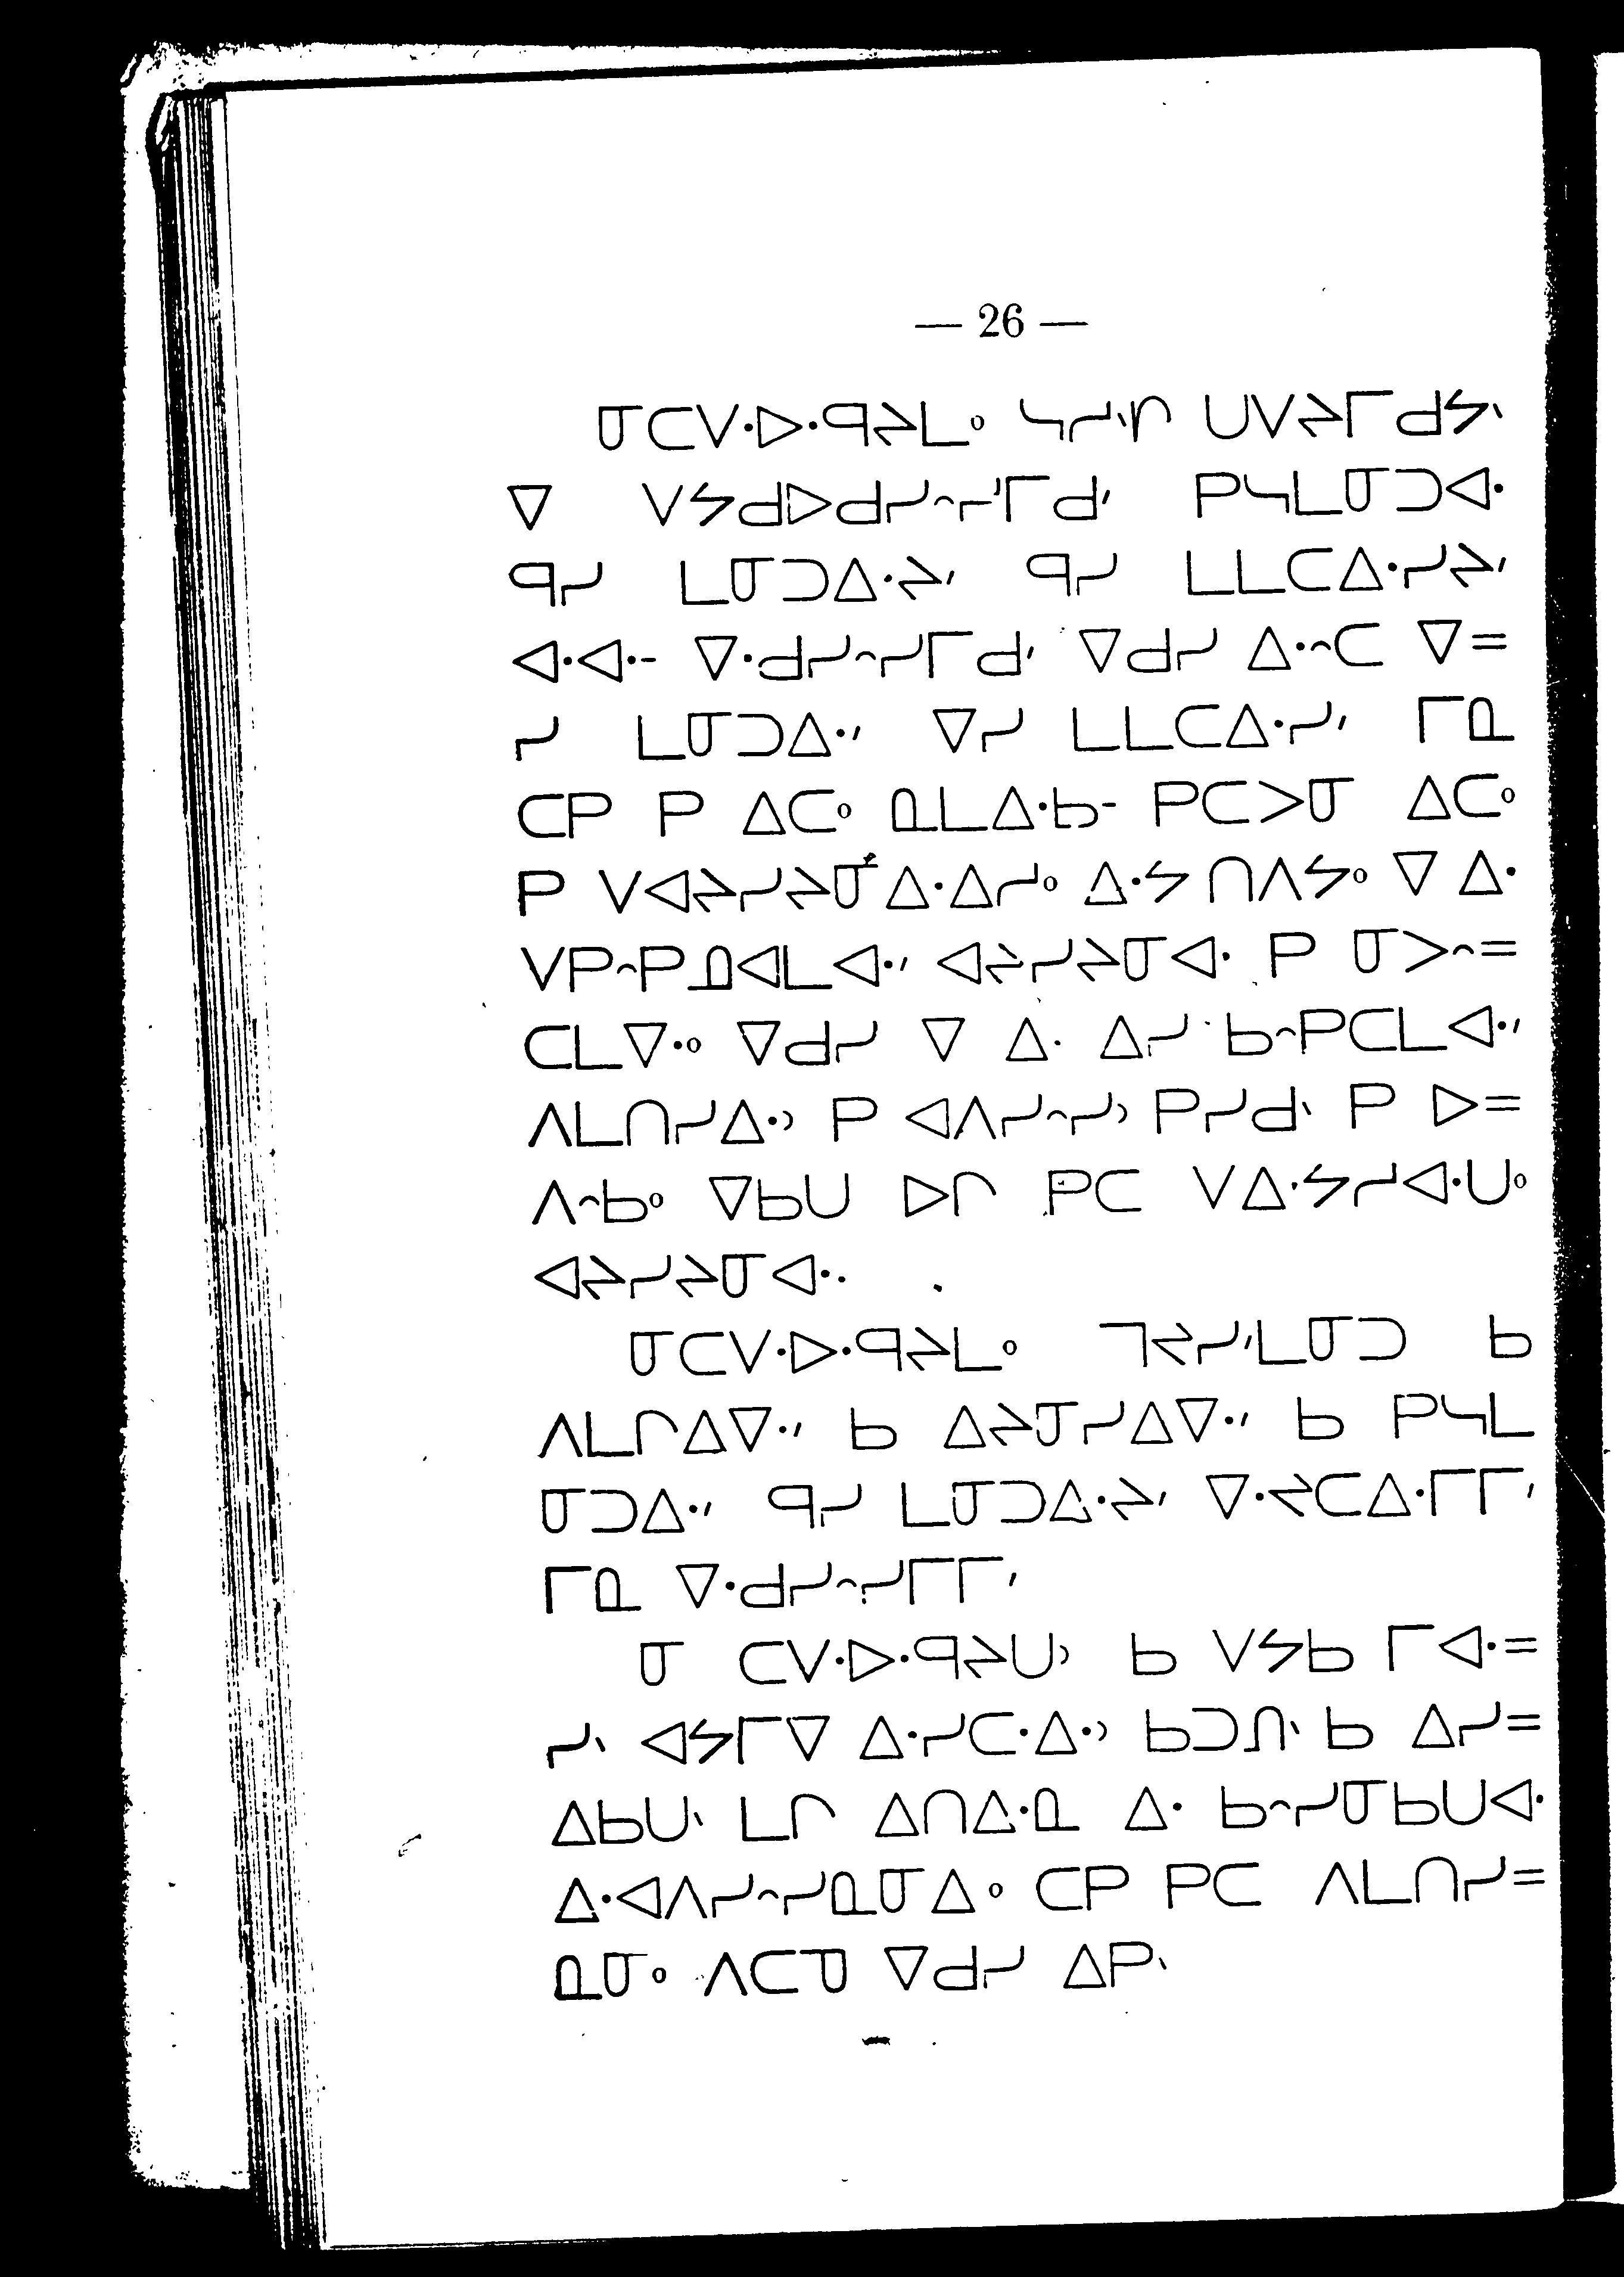 — 26 —
ᓂᑕᐯᐧᐅᐧᑫᔨᒪᐤ ᓭᓯᐠᕒᒋ ᑌᐯᔨᒥᑯᔭᐠ
ᐁ ᐯᔭᑯᐅᑯᓯᐢᓯᒥᑯᐟ ᑭᓭᒪᓂᑐᐊᐧ
ᑫᓯ ᒪᓂᑐᐃᐧᔨᐟ ᑫᓯ ᒪᒪᑕᐃᐧᓯᔨᐟ
ᐊᐧᐊᐧᐨ ᐁᐧᑯᓯᐢᓯᒥᑯᐟ ᐁᑯᓯ ᐃᐧᐢᑕ ᐁ=
ᓯ ᒪᓂᑐᐃᐧᐟ ᐁᓯ ᒪᒪᑕᐃᐧᓯᐟ ᒥᓇ
ᑕᑭ ᑭ ᐃᑕᐤ ᓇᒪᐃᐧᑲᐨ ᑭᑕᐳᓂ ᐃᑕᐤ
ᑭ ᐯᐊᔨᓯᔨᓂᐃᐧᐃᓯᐤ ᐃᐧᔭ ᑎᐱᔭᐤ ᐁ ᐃᐧ
ᐯᑭᐢᑭᓄᐊᒪᐊᐧᐟ ᐊᔨᓯᔨᓂᐊᐧ ᑭ ᓂᐳᐢ=
ᑕᒪᐁᐧᐤ ᐁᑯᓯ ᐁ ᐃᐧ ᐃᓯ ᑲᐢᑭᑕᒪᐊᐧᐟ
ᐱᒪᑎᓯᐃᐧᐣ ᑭ ᐊᐱᓯᐢᓯᐣ ᑭᓯᑯᐠ ᑭ ᐅ=
ᐱᐢᑲᐤ ᐁᑲᑌ ᐅᒋ ᑭᑕ ᐯᐃᐧᔭᓯᐊᐧᑌᐤ
ᐊᔨᓯᔨᓂᐊᐧ.
ᓂᑕᐯᐧᐅᐧᑫᔨᒪᐤ ᒣᔪᓯᐟᒪᓂᑐ ᑲ
ᐱᒪᒋᐃᐁᐧᐟ ᑲ ᐃᔨᓂᓯᐃᐁᐧᐟ ᑲ ᑭᓭᒪ
ᓂᑐᐃᐧᐟ ᑫᓯ ᒪᓂᑐᐃᐧᔨᐟ ᐁᐧᔪᑕᐃᐧᒥᒥᐟ
ᒥᓇ ᐁᐧᑯᓯᐢᓯᒥᒥᐟ
ᓂ ᑕᐯᐧᐅᐧᑫᔨᑌᐣ ᑲ ᐯᔭᑲ ᒥᐊᐧ=
ᓯᐠ ᐊᔭᒥᐁ ᐃᐧᓯᑕᐧᐃᐧᐣ ᑲᑐᓄᐠ ᑲ ᐃᓯ=
ᐃᑲᑌᐠ ᒪᒋ ᐃᑎᐃᐧᓇ ᐃᐧ ᑲᐢᓯᓂᑲᑌᐊᐧ
ᐃᐧᐊᐱᓯᐢᓯᓇᓂᐃᐤ ᑕᑭ ᑭᑕ ᐱᒪᑎᓯ=
ᓇᓂᐤ ᐱᑕᓀ ᐁᑯᓯ ᐃᑭᐠ